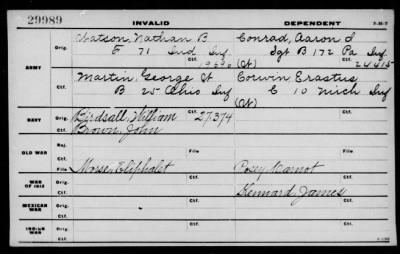 29989
INVALID
DEPENDENT
Watson, Nathan B
Conrad, Aaron J
Orig.
F 71 Ind Inf.
Sgt B 172 Pa Inf.
ARMY
(Ct)
24415
Martin, George W
Corwin Erastus
Ctf.
B 25 Ohio Inf
C 10 Mich Inf
(Ct)
NAVY
Orig.
Birdsall, William
Ctf.
27374
Orig.
Ctf.
Ctf.
Brown, John
OLD WAR
Rej.
Ctf.
File
Morse, Eliphalet
Posey, Marnot
WAR OF 1812
Orig.
Ctf.
Kennard, James
MEXICAN WAR
Orig.
Ctf.
Orig.
Ctf.
INDIAN WAR
Orig.
Ctf.